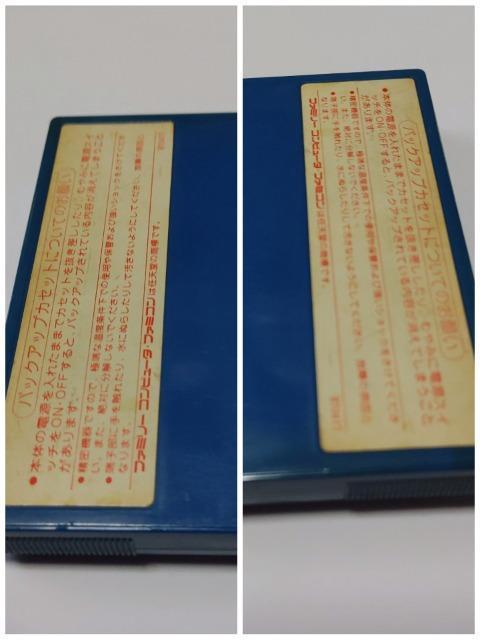 バックアップカセットについてのお願い
●本体の電源を入れたままでカセットを抜き差ししたり、むやみに電源スイ
ッチをON・OFFすると、バックアップされている内容が消えてしまうこと
があります。
●精密機器ですので、極端な温度条件下での使用や保管および強いショックをさけてくださ
い。また、絶対に分解しないでください。
●端子部に手を触れたり、水にぬらしたりして汚さないようにしてください。故障の原因と
なります。
ファミリーコンピュータ・ファミコンは任天堂の商標です。
バックアップカセットについてのお願い
●本体の電源を入れたままでカセットを抜き差ししたり、むやみに電源スイ
ッチをON・OFFすると、バックアップされている内容が消えてしまうこと
があります。
●精密機器ですので、極端な温度条件下での使用や保管および強いショックをさけてくださ
い。また、絶対に分解しないでください。
●端子部に手を触れたり、水にぬらしたりして汚さないようにしてください。故障の原因と
なります。
ファミリーコンピュータ・ファミコンは任天堂の商標です。